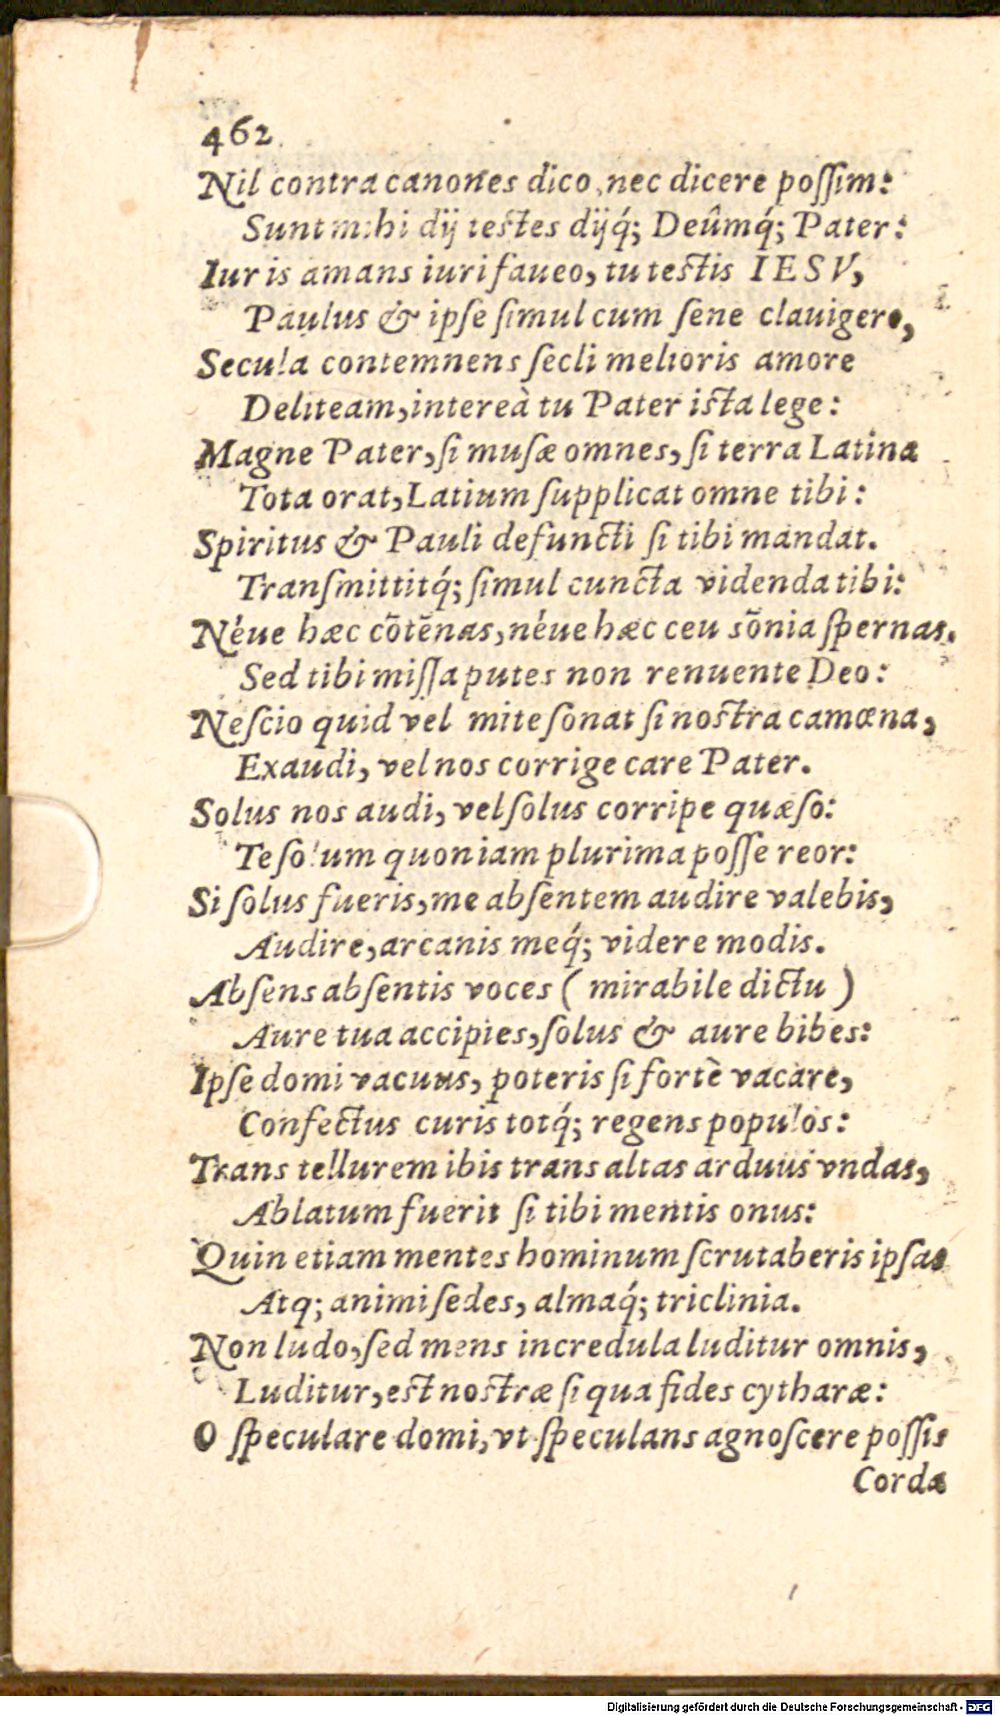 462
Nil contra canones dico, nec dicere poſſim:
Sunt mihi dij testes dijq́; Deûmq́; Pater:
Iuris amans iuri faueo, tu testis IESV,
Paulus & ipſe ſimul cum ſene clauigero,
Secula contemnens ſecli melioris amore
Deliteam, intereà tu Pater ista lege:
Magne Pater, ſi muſæ omnes, ſi terra Latina
Tota orat, Latium ſupplicat omne tibi:
Spiritus & Pauli defuncti ſi tibi mandat.
Tranſmittitq́; ſimul cuncta videnda tibi:
Néue hæc cõtẽnas, néue hæc ceu sõnia ſpernas.
Sed tibi miſſa putes non renuente Deo:
Neſcio quid vel mite ſonat ſi nostra camœna,
Exaudi, vel nos corrige care Pater.
Solus nos audi, vel ſolus corripe quæſo:
Te ſolum quoniam plurima poſſe reor:
Si ſolus fueris, me abſentem audire valebis,
Audire, arcanis meq́; videre modis.
Abſens abſentis voces ( mirabile dictu )
Aure tua accipies, ſolus & aure bibes:
Ipſe domi vacuus, poteris ſi fortè vacare,
Confectus curis totq́; regens populos:
Trans tellurem ibis trans altas arduus vndas,
Ablatum fuerit ſi tibi mentis onus:
Quin etiam mentes hominum ſcrutaberis ipſas
Atq; animi ſedes, almaq́; triclinia.
Non ludo, ſed mens incredula luditur omnis,
Luditur, est nostræ ſi qua fides cytharæ:
O ſpeculare domi, vt ſpeculans agnoſcere poſſis
Corda
Digitalisierung gefördert durch die Deutsche Forschungsgemeinschaft - DFG